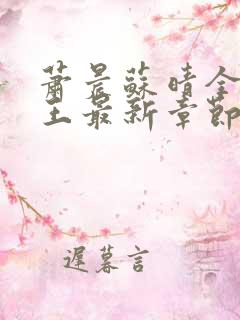 蕭晨蘇晴全
王最新章節
遲暮言